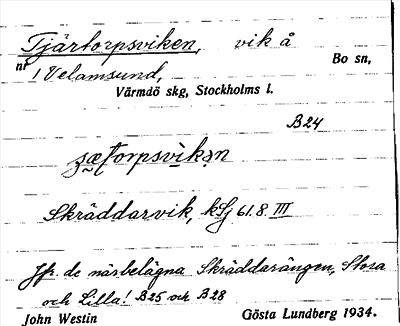 Tjärtorpsviken, vik å
nr 1 Velamsund,
Bo sn,
Värmdö skg, Stockholms l.
B24
Skräddarvik, kSj 61.8. III
Jfr. de närbelägna Skräddarängen, Stora
och Lilla! B25 och B28
John Westin
Gösta Lundberg 1934.